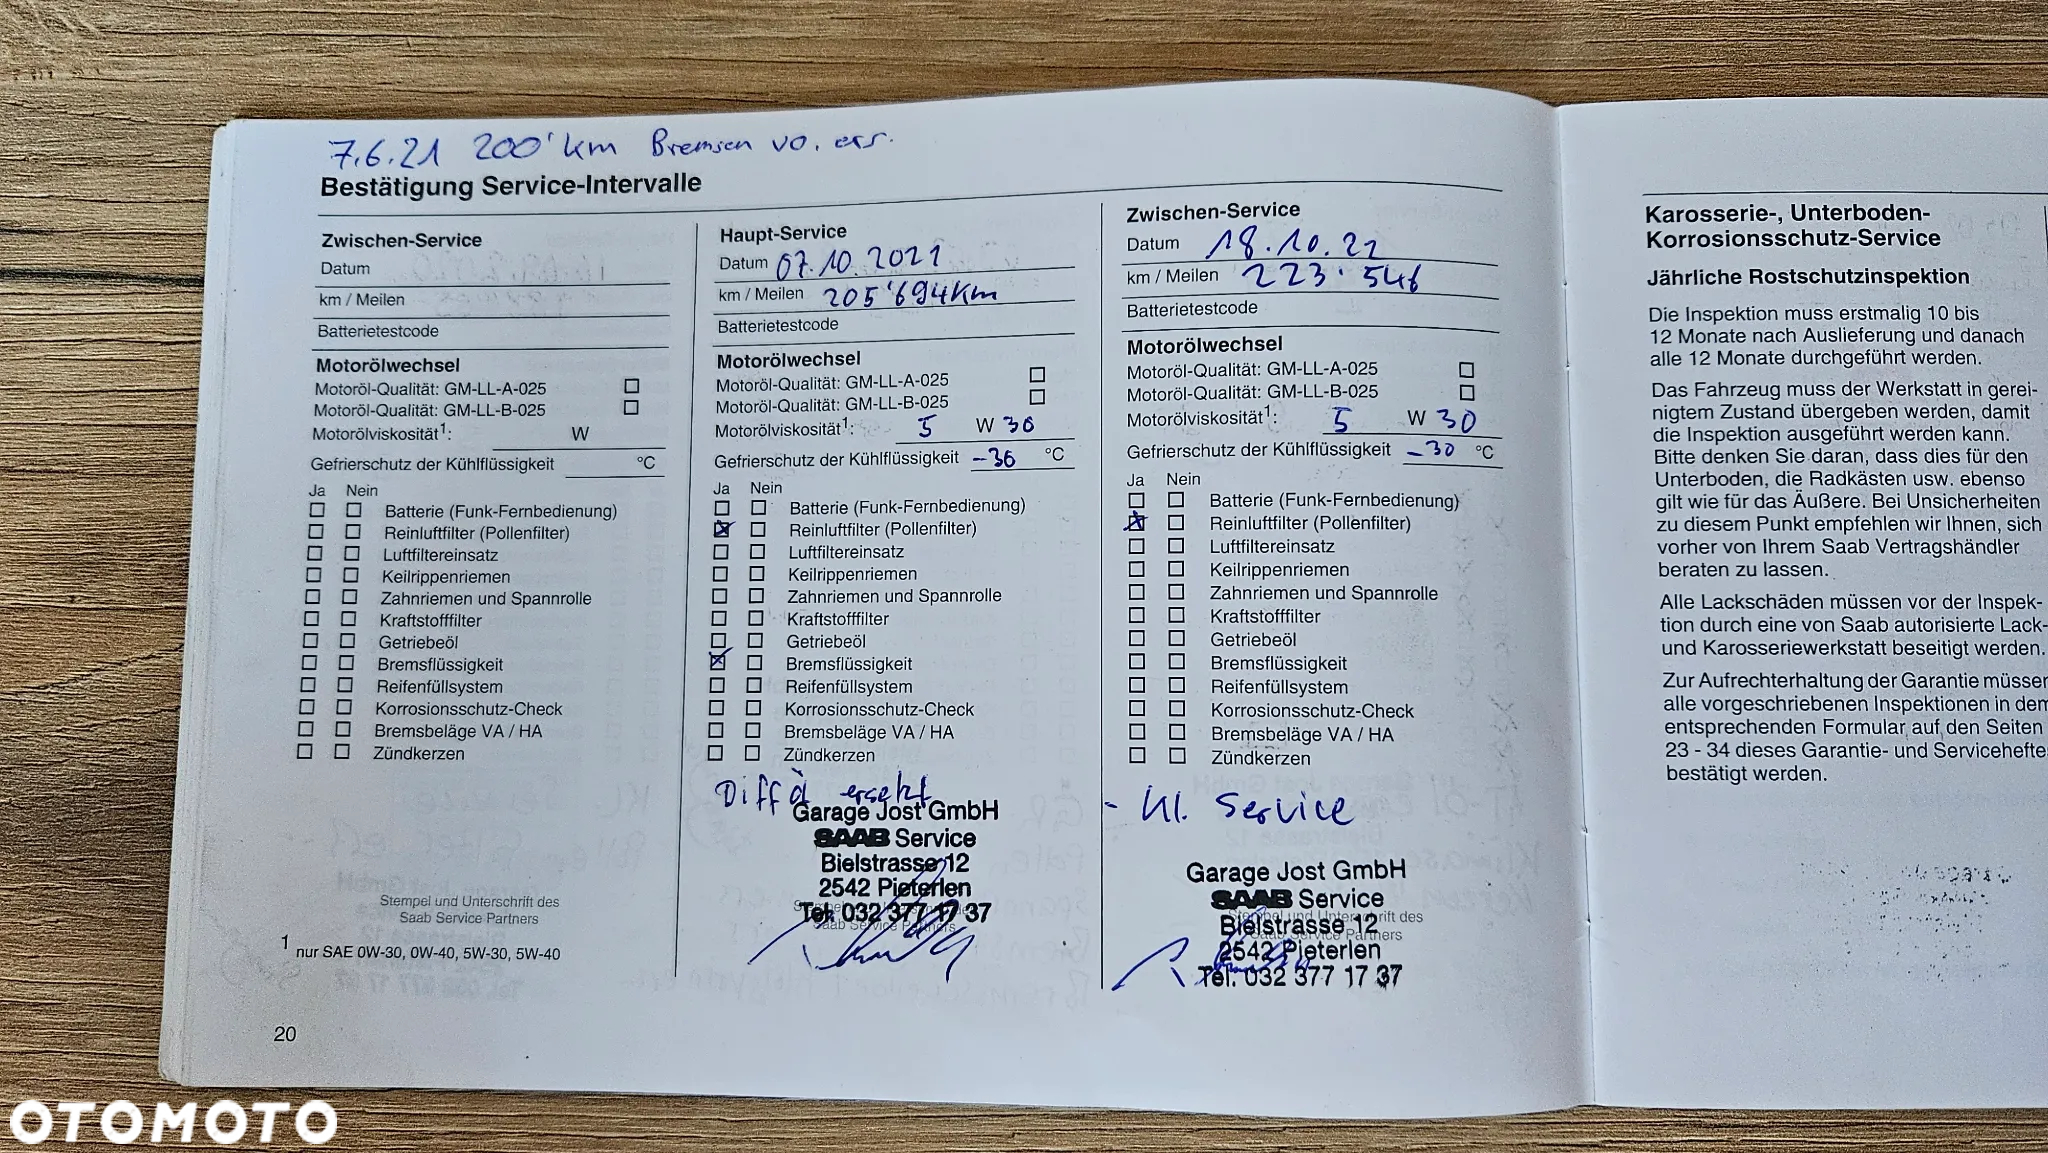 7.6.21 200'km Bremsen vo. ers.
Bestätigung Service-Intervalle
Zwischen-Service
Datum
km / Meilen
Batterietestcode
Motorölwechsel
Motoröl-Qualität: GM-LL-A-025
Motoröl-Qualität: GM-LL-B-025
Motorölviskosität1: W
Gefrierschutz der Kühlflüssigkeit °C
Ja Nein
Batterie (Funk-Fernbedienung)
Reinluftfilter (Pollenfilter)
Luftfiltereinsatz
Keilrippenriemen
Zahnriemen und Spannrolle
Kraftstofffilter
Getriebeöl
Bremsflüssigkeit
Reifenfüllsystem
Korrosionsschutz-Check
Bremsbeläge VA / HA
Zündkerzen
Stempel und Unterschrift des
Saab Service Partners
1 nur SAE 0W-30, 0W-40, 5W-30, 5W-40
20
Haupt-Service
Datum 07.10.2021
km / Meilen 205'694km
Batterietestcode
Motorölwechsel
Motoröl-Qualität: GM-LL-A-025
Motoröl-Qualität: GM-LL-B-025
Motorölviskosität1: 5 W 30
Gefrierschutz der Kühlflüssigkeit -36 °C
Ja Nein
Batterie (Funk-Fernbedienung)
Reinluftfilter (Pollenfilter)
Luftfiltereinsatz
Keilrippenriemen
Zahnriemen und Spannrolle
Kraftstofffilter
Getriebeöl
Bremsflüssigkeit
Reifenfüllsystem
Korrosionsschutz-Check
Bremsbeläge VA / HA
Zündkerzen
ersetzt
Garage Jost GmbH
SAAB Service
Bielstrasse 12
2542 Pieterlen
Tel. 032 377 17 37
Saab Service Partners
Zwischen-Service
Datum 18.10.22
km / Meilen 223.546
Batterietestcode
Motorölwechsel
Motoröl-Qualität: GM-LL-A-025
Motoröl-Qualität: GM-LL-B-025
Motorölviskosität1: 5 W 30
Gefrierschutz der Kühlflüssigkeit -30 °C
Ja Nein
Batterie (Funk-Fernbedienung)
Reinluftfilter (Pollenfilter)
Luftfiltereinsatz
Keilrippenriemen
Zahnriemen und Spannrolle
Kraftstofffilter
Getriebeöl
Bremsflüssigkeit
Reifenfüllsystem
Korrosionsschutz-Check
Bremsbeläge VA / HA
Zündkerzen
- Kl. Service
Garage Jost GmbH
SAAB Service
Stempel und Unterschrift des
Bielstrasse 12
Saab Service Partners
2542 Pieterlen
Tel. 032 377 17 37
Karosserie-, Unterboden-
Korrosionsschutz-Service
Jährliche Rostschutzinspektion
Die Inspektion muss erstmalig 10 bis
12 Monate nach Auslieferung und danach
alle 12 Monate durchgeführt werden.
Das Fahrzeug muss der Werkstatt in gerei-
nigtem Zustand übergeben werden, damit
die Inspektion ausgeführt werden kann.
Bitte denken Sie daran, dass dies für den
Unterboden, die Radkästen usw. ebenso
gilt wie für das Äußere. Bei Unsicherheiten
zu diesem Punkt empfehlen wir Ihnen, sich
vorher von Ihrem Saab Vertragshändler
beraten zu lassen.
Alle Lackschäden müssen vor der Inspek-
tion durch eine von Saab autorisierte Lack-
und Karosseriewerkstatt beseitigt werden.
Zur Aufrechterhaltung der Garantie müssen
alle vorgeschriebenen Inspektionen in dem
entsprechenden Formular auf den Seiten
23 - 34 dieses Garantie- und Serviceheftes
bestätigt werden.
OTOMOTO